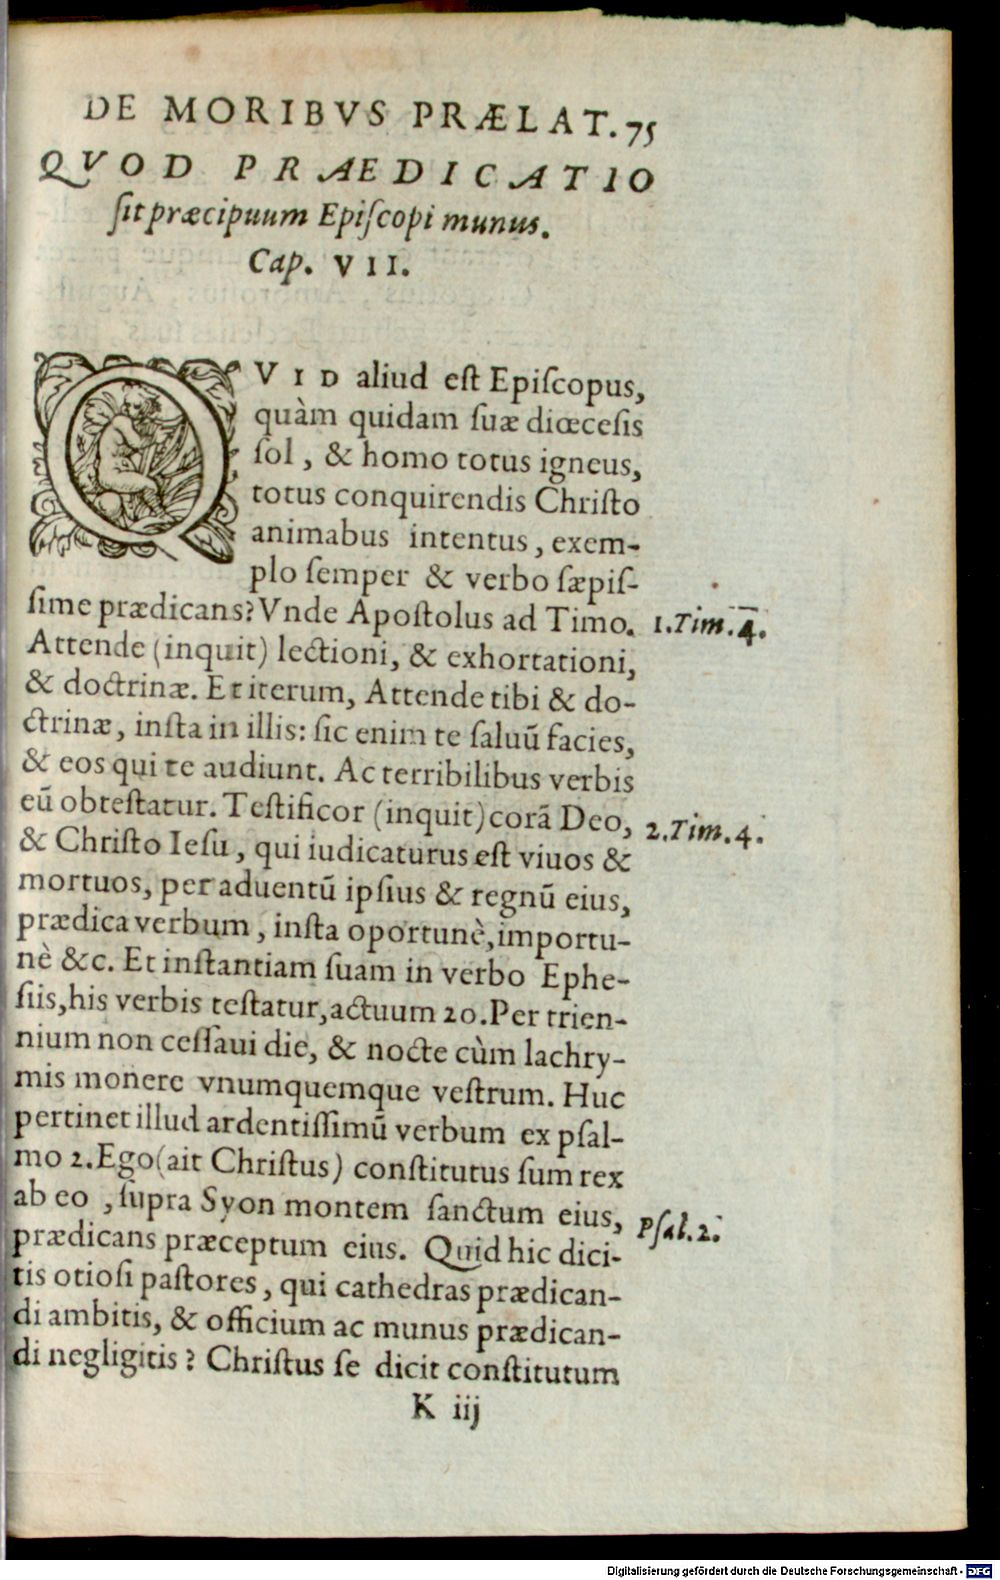 DE MORIBVS PRÆLAT. 75
QVOD PRAEDICATIO
ſit præcipuum Epiſcopi munus.
Cap. VII.
QVID aliud eſt Epiſcopus,
quàm quidam ſuæ diœceſis
ſol, & homo totus igneus,
totus conquirendis Chriſto
animabus intentus, exem-
plo ſemper & verbo ſæpiſ-
ſime prædicans? Vnde Apoſtolus ad Timo. 1.Tim.4.
Attende (inquit) lectioni, & exhortationi,
& doctrinæ. Et iterum, Attende tibi & do-
ctrinæ, inſta in illis: ſic enim te ſaluũ facies,
& eos qui te audiunt. Ac terribilibus verbis
eũ obteſtatur. Teſtificor (inquit) corã Deo, 2.Tim.4.
& Chriſto Ieſu, qui iudicaturus eſt viuos &
mortuos, per aduentũ ipſius & regnũ eius,
prædica verbum, inſta oportunè, importu-
nè &c. Et inſtantiam ſuam in verbo Ephe-
ſiis, his verbis teſtatur, actuum 20. Per trien-
nium non ceſſaui die, & nocte cùm lachry-
mis monere vnumquemque veſtrum. Huc
pertinet illud ardentiſſimũ verbum ex pſal-
mo 2. Ego (ait Chriſtus) conſtitutus ſum rex
ab eo, ſupra Syon montem ſanctum eius, Pſal.2.
prædicans præceptum eius. Quid hic dici-
tis otioſi paſtores, qui cathedras prædican-
di ambitis, & officium ac munus prædican-
di negligitis? Chriſtus ſe dicit conſtitutum
K iij
Digitalisierung gefördert durch die Deutsche Forschungsgemeinschaft - DFG